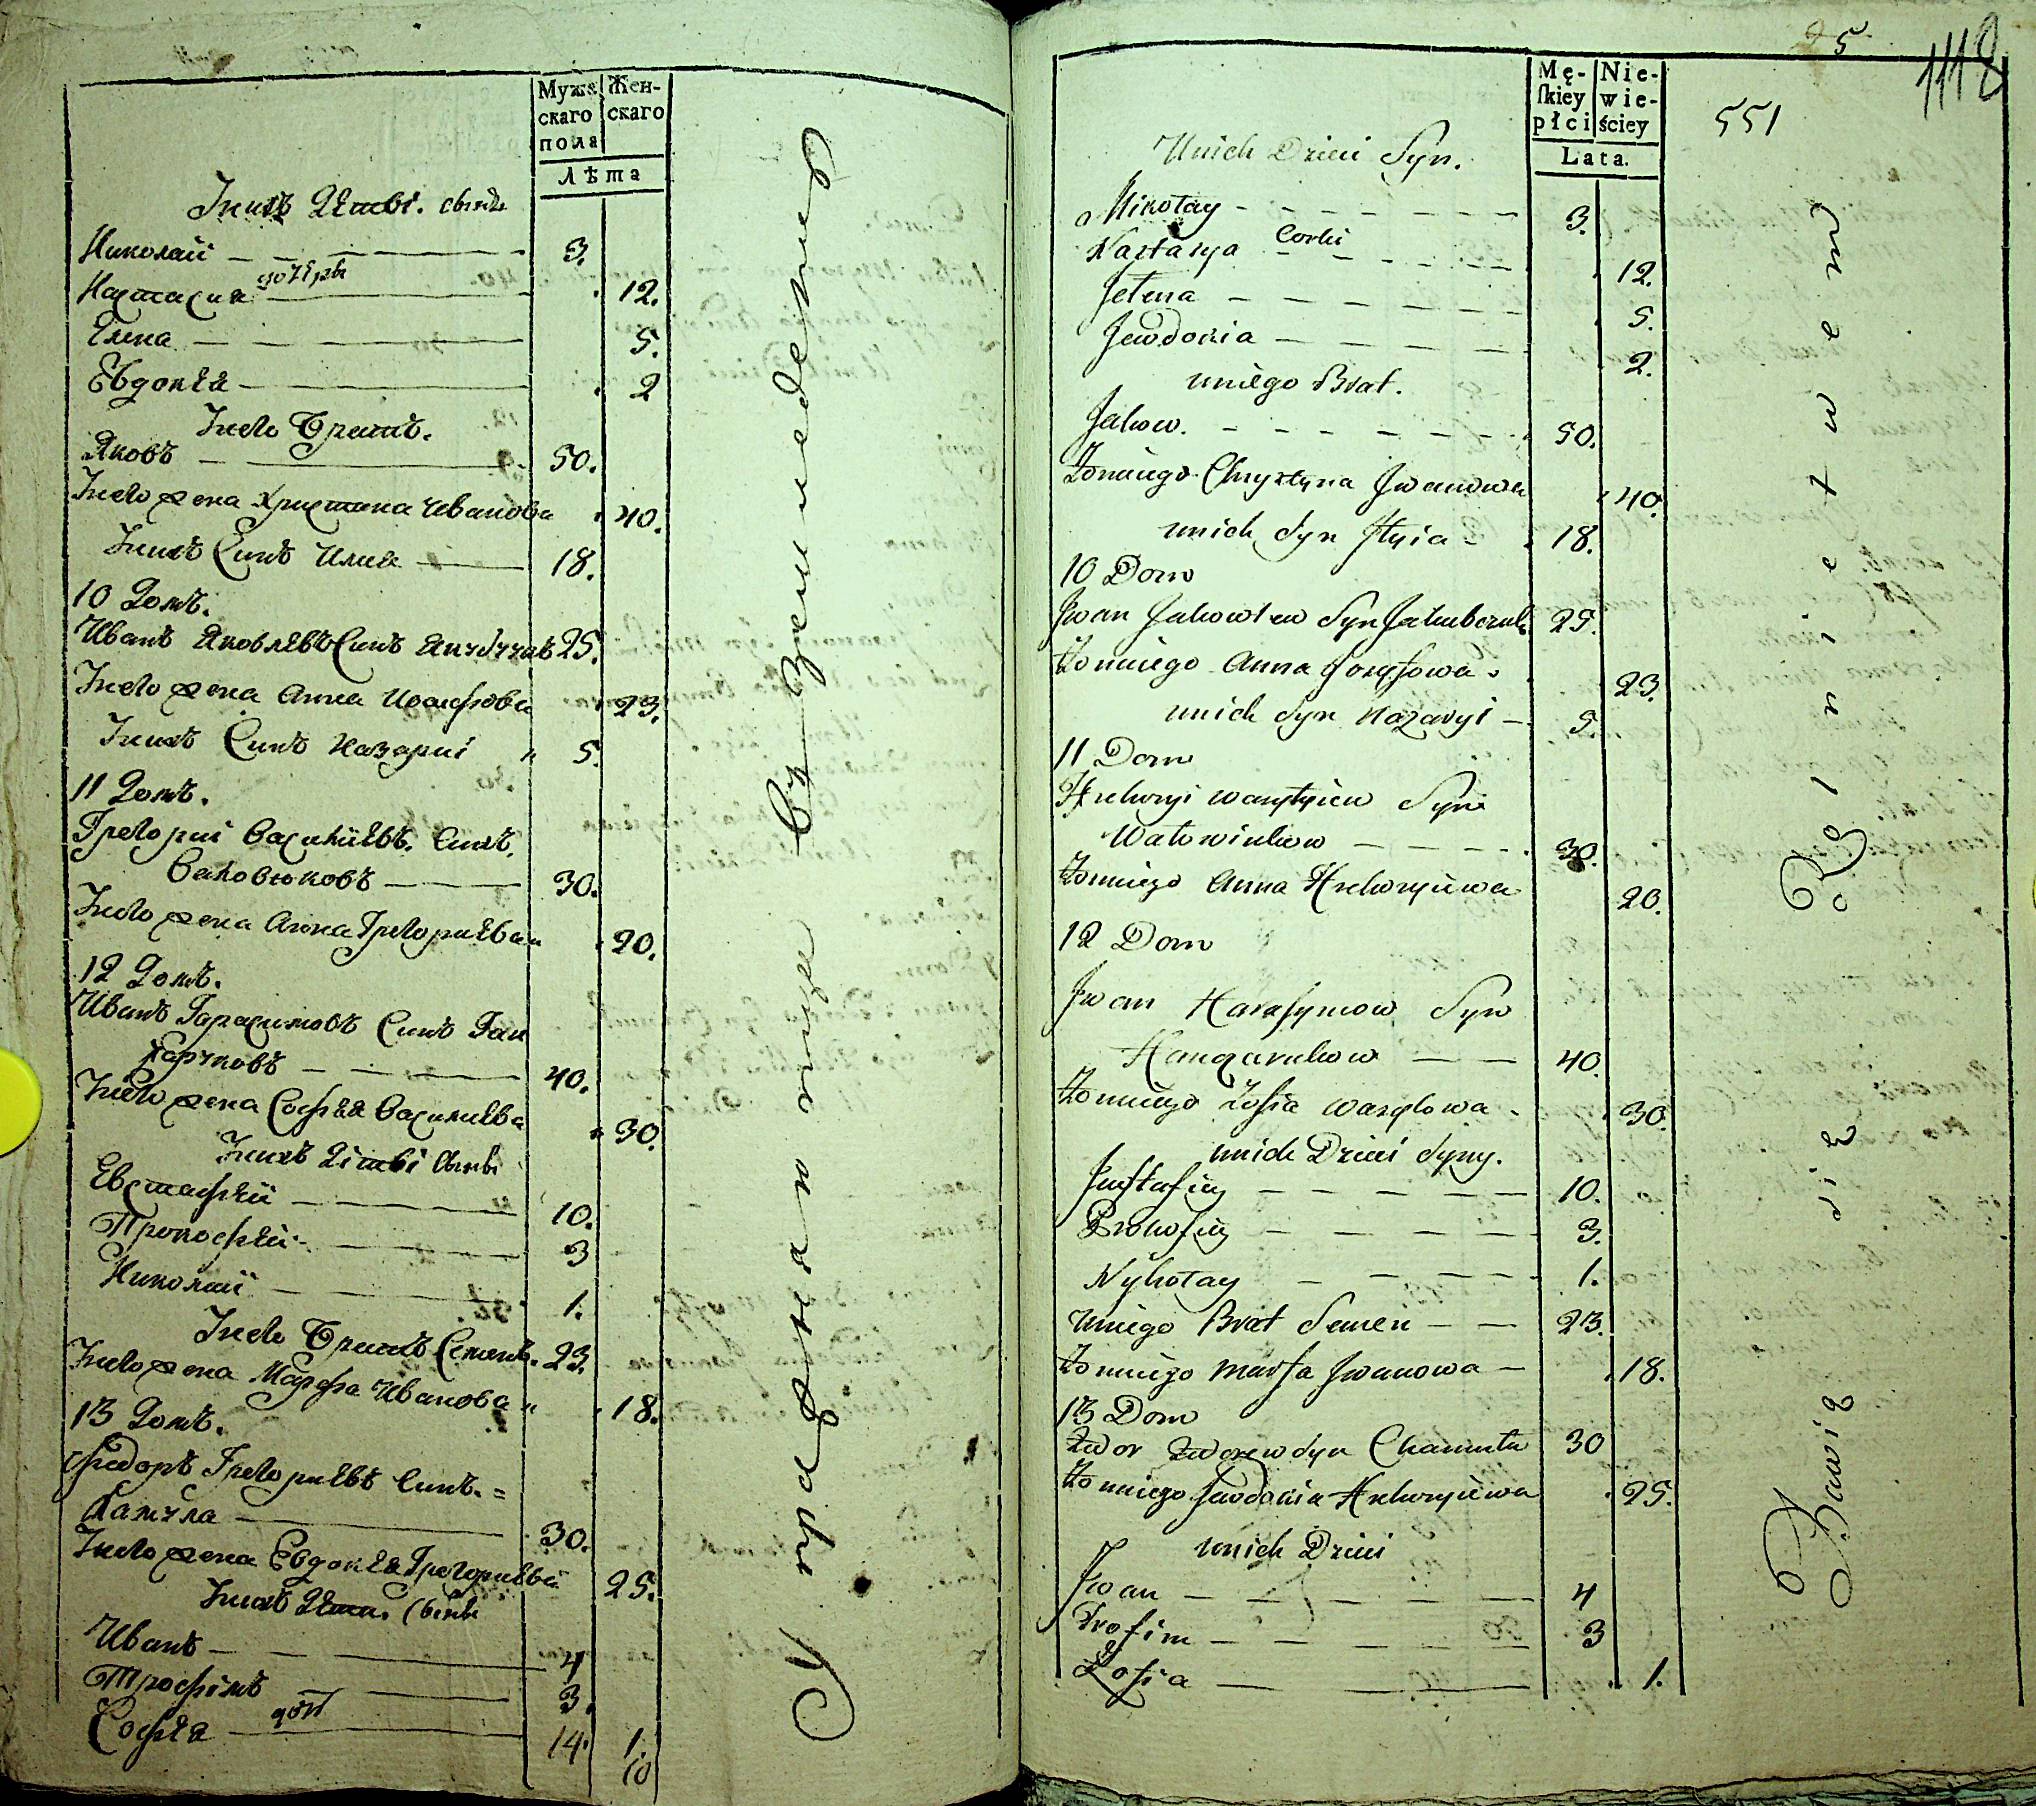 Мужескаго пола
Женскаго
Лѣта
У нихъ Дѣти. сыны
Николай 3.
Настасия дочери 12.
Елена 5.
Евдокѣя 2
У него Братъ.
Яковъ 50.
У него жена Христина Иванова 40.
У нихъ Синъ Илия 18.
10 Домъ.
Иванъ Яковлевъ Синъ Якубчикъ 25.
У него жена Анна Иосифова 23.
У нихъ Синъ Назарий 5.
11 Домъ.
Григорий Василиевъ. Синъ.
Валовиковъ 30.
У него жена Анна Григориева 20.
12 Домъ.
Иванъ Гарасимовъ Синъ Ган
чаруковъ 40.
У него жена Софѣя Василиева 30.
У нихъ Дѣти Сыны
Евстафѣй 10.
Прокофѣй 3
Николай 1.
У него Братъ Семенъ. 23.
У него жена Марфа Иванова 18.
13 Домъ.
Федоръ Григориевъ Синъ. =
Хамула 30.
У него жена Евдокѣя Григориева 25.
У нихъ Дѣти. Сыны
Иванъ 4
Трофимъ 3.
Софѣя доч 1.
14. 10
Męskiey płci
Niewieściey
Lata.
5
1118
551
Unich Dzieci Syn.
Mikołay 3.
Nastasya Corki 12.
Jelena 5.
Jewdokia 2.
uniego Brat.
Jakow. 50.
Żona iego Chrystyna Jwanowa 40.
unich Syn Jlyia 18.
10 Dom
Jwan Jakowlew Syn Jakubczuk 25.
Żona iego Anna Jozefowa 23.
unich Syn Nazaryi 5.
11 Dom
Hrehoryi Wasylyiew Syn
Wałowiukow 30.
Żona iego Anna Hrehoryiewa 20.
12 Dom
Jwan Harasymow Syn
Hanczarukow 40.
Żona iego Zofia Wasylowa 30.
unich Dzieci Syny.
Jewstafiey 10.
Prokofiey 3.
Nykołay 1.
uniego Brat Semen 23.
Żona iego Marfa Jwanowa 18.
13 Dom
Chamuła 30
Żona iego Jewdokia Hrehoryiewa 25.
unich Dzieci
Jwan 4
Trofim 3
Zofia 1.